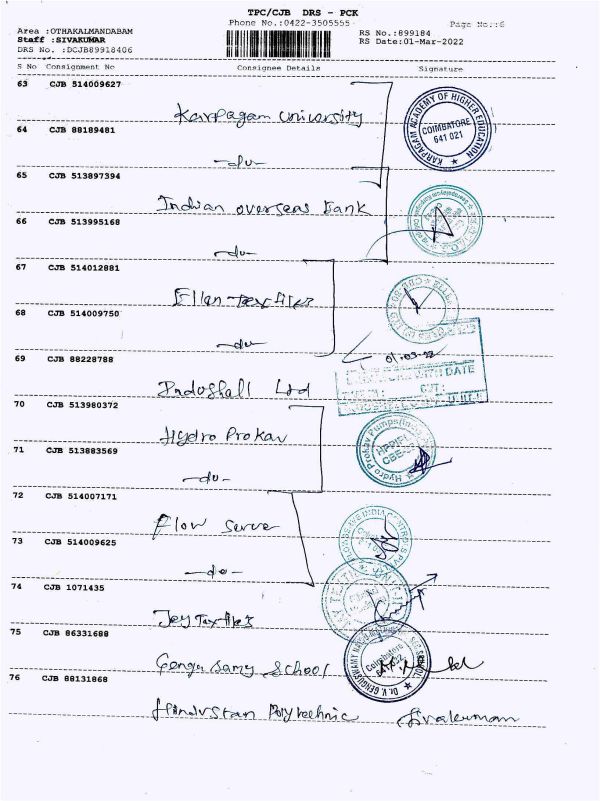 TPC/CJB DRS - PCK
Phone No.:0422-3505555
Page No.:6
Area :OTHAKALMANDABAM
RS No.:899184
Staff :SIVAKUMAR
RS Date:01-Mar-2022
DRS No. :DCJB89918406
S No Consignment No Consignee Details Signature
63 CJB 514009627
Karpagam University
KARPAGAM ACADEMY OF HIGHER EDUCATION
COIMBATORE
641 021
64 CJB 88189481
-do-
65 CJB 513897394
Indian overseas Bank
66 CJB 513995168
-do-
67 CJB 514012881
Ellan Textiles
68 CJB 514009750
-do-
01.03.22
WITH DATE
69 CJB 88228788
Indoshell Ltd
70 CJB 513980372
Hydro Prokav
Hydro Prokav Pumps
71 CJB 513883569
-do-
72 CJB 514007171
Flow serve
73 CJB 514009625
-do-
74 CJB 1071435
Jey Textiles
75 CJB 86331688
Genga Samy School
Coimbatore
76 CJB 88131868
Hindustan Polytechnic
Sivakumar